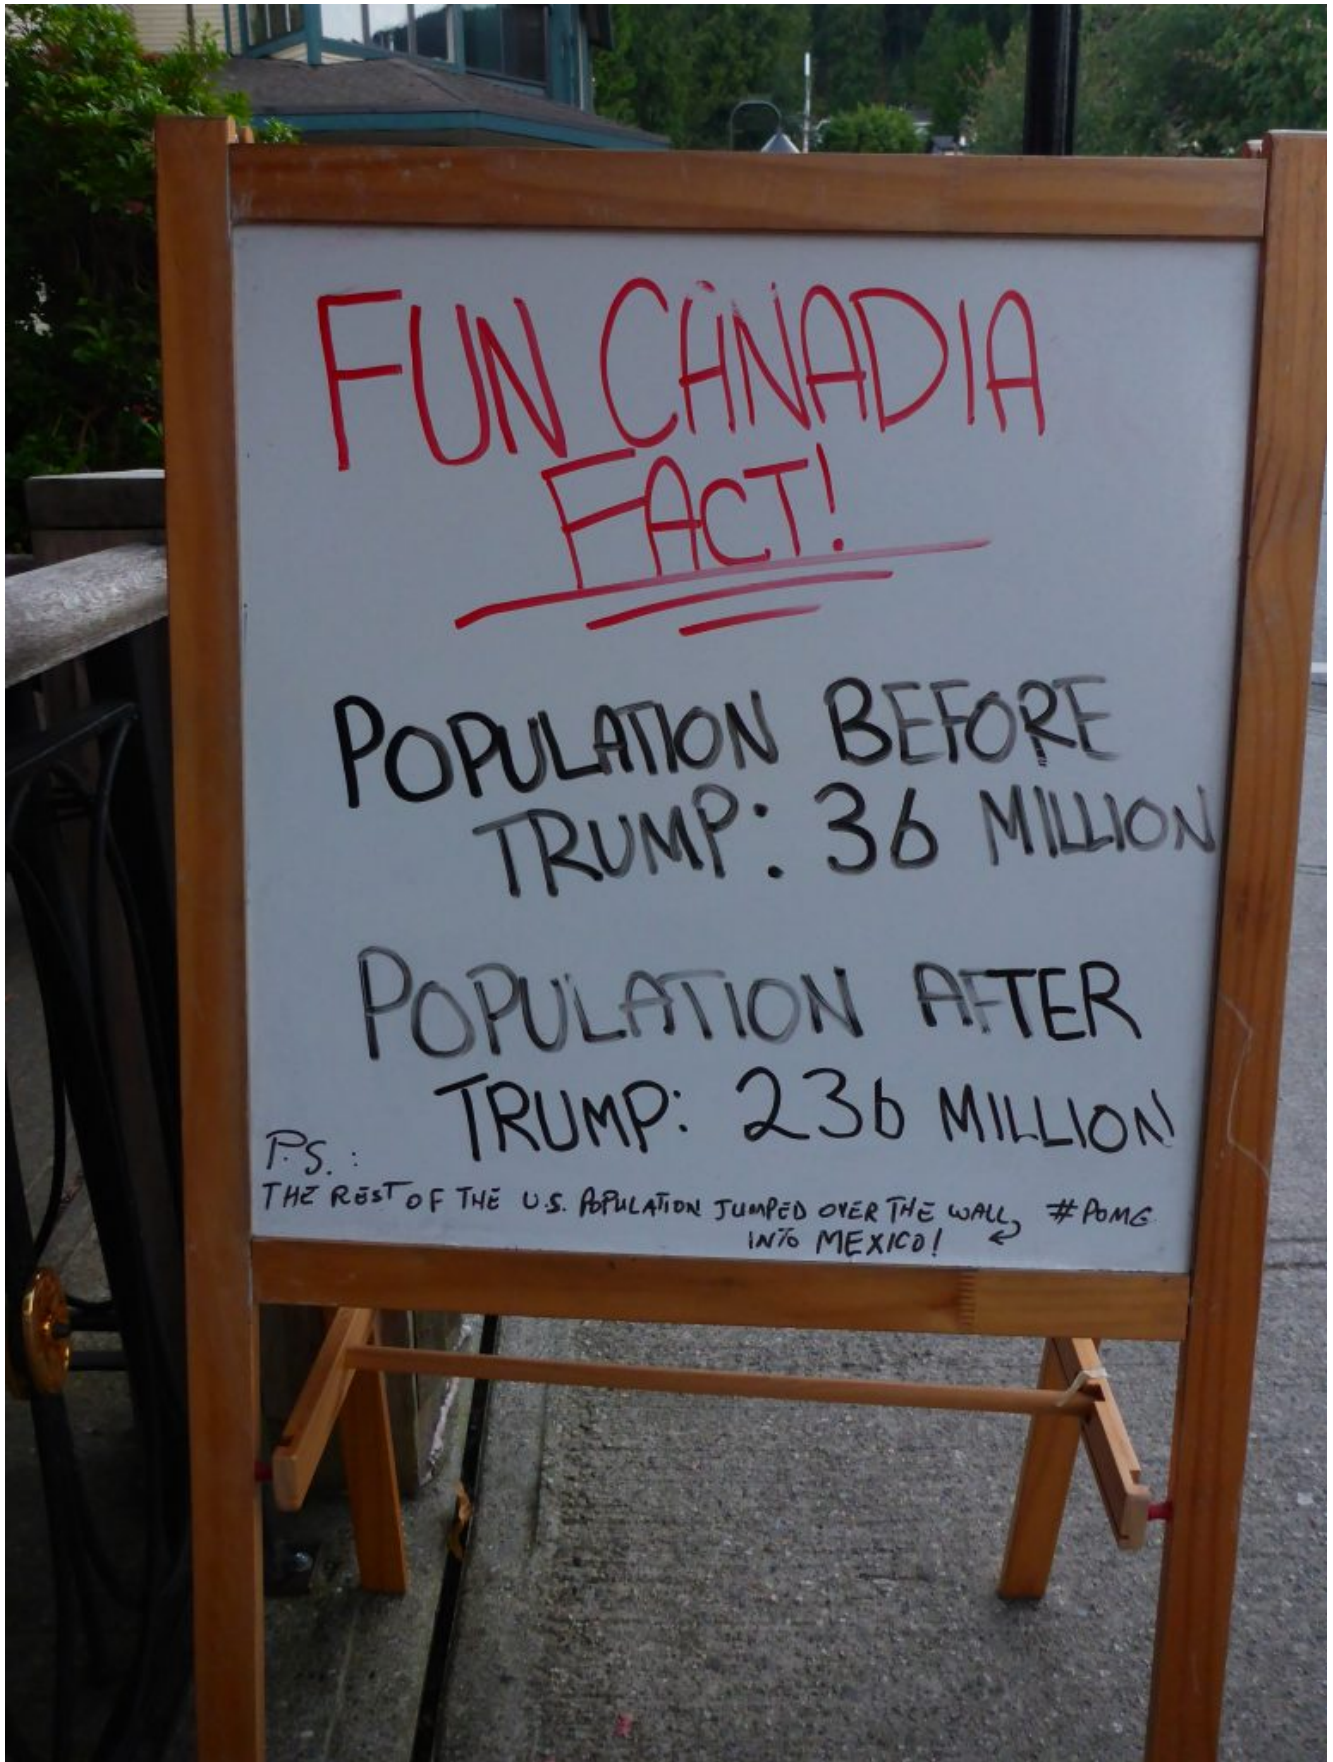 FUN CANADIA
FACT!
POPULATION BEFORE
TRUMP: 36 MILLION
POPULATION AFTER
TRUMP: 236 MILLION
P.S.:
THE REST OF THE U.S. POPULATION JUMPED OVER THE WALL #POMG
INTO MEXICO!